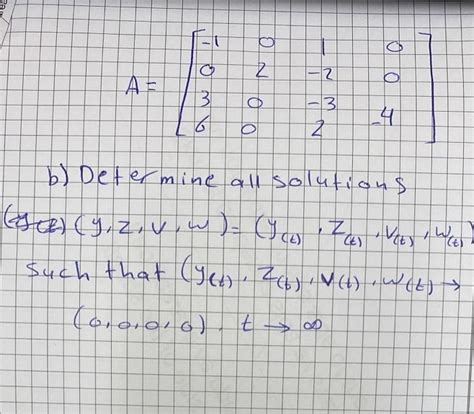 -1 0 1 0
0 2 -2 0
A =
3 0 -3 -4
6 0 2
b) Determine all solutions
(y, z, v, w) = (y(t), z(t), v(t), w(t))
such that (y(t), z(t), v(t), w(t) →
(0,0,0,0). t → ∞